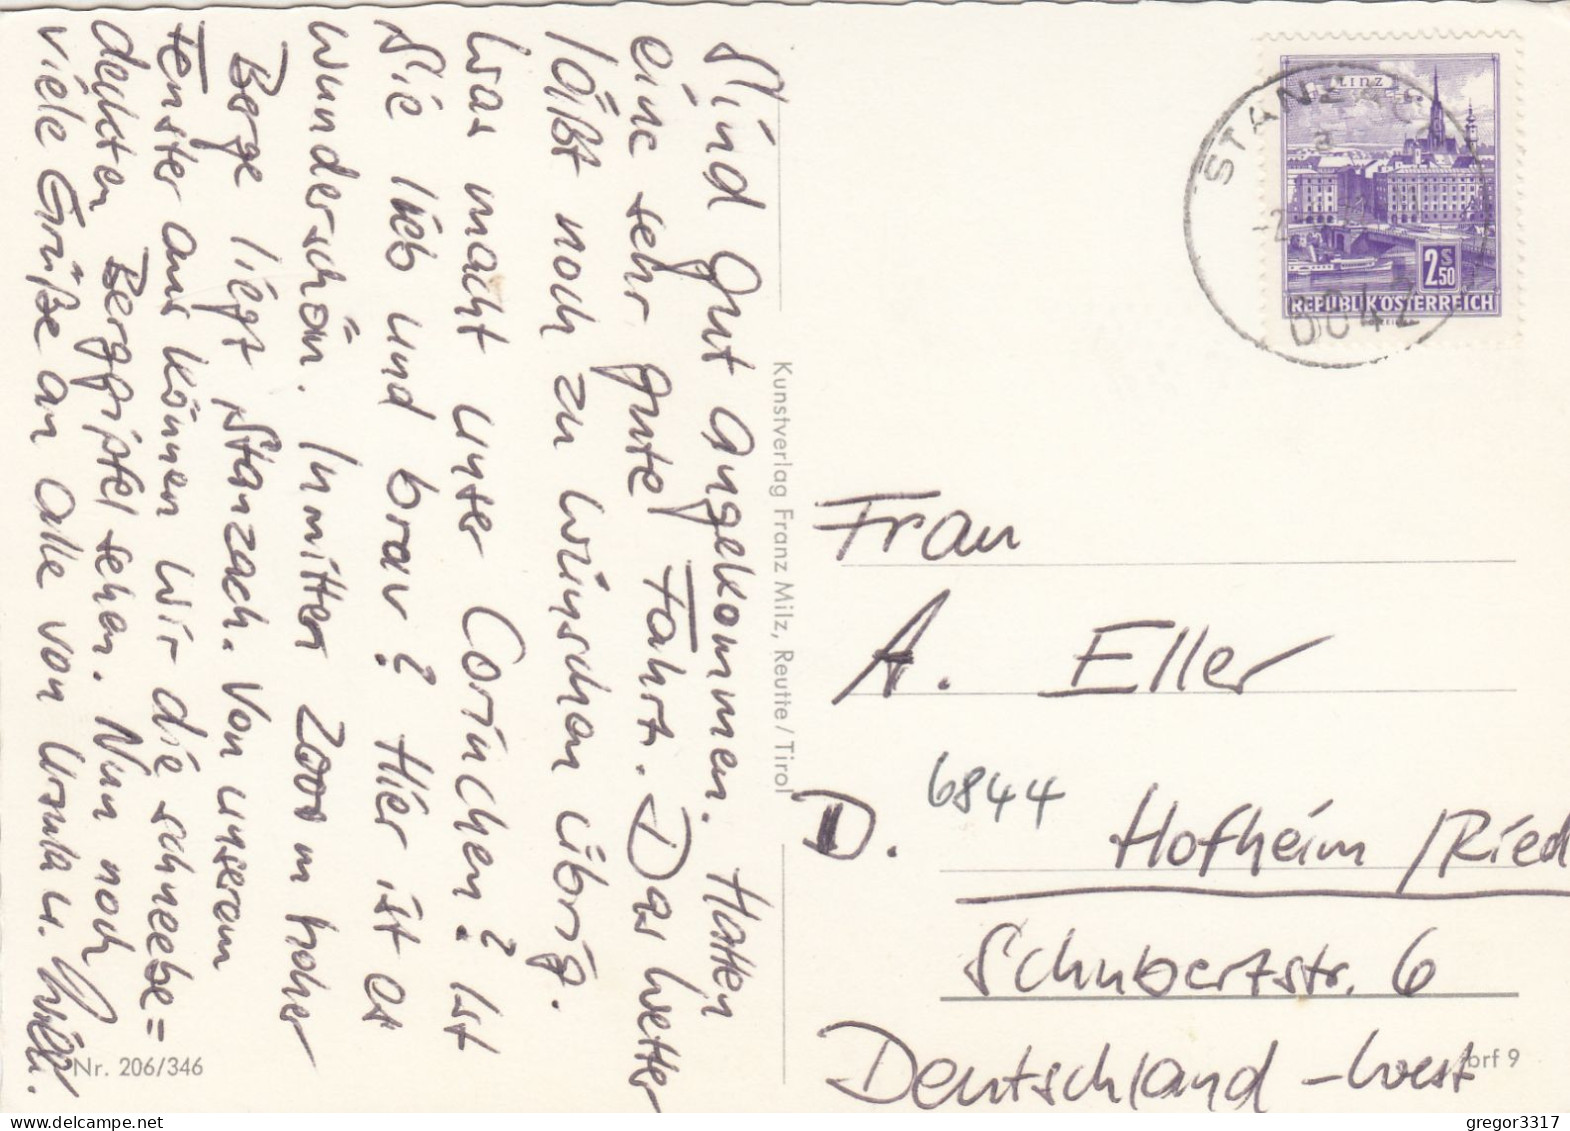 Sind gut angekommen. Hatten
eine sehr gute Fahrt. Das Wetter
läßt noch zu wünschen übrig.
Was macht unser Corinchen? Ist
sie lieb und brav? Hier ist es
wunderschön. Inmitten 2000 m hoher
Berge liegt Stanzach. Von unserem
Fenster aus können wir die schneebe=
deckten Berggipfel sehen. Nun noch
viele Grüße an alle von Ursula u. Willi.
Kunstverlag Franz Milz, Reutte/Tirol
Nr. 206/346
LINZ
2 S 50
REPUBLIK ÖSTERREICH
STANZACH
a
Frau
A. Eller
D. 6844
Hofheim/Ried
Schubertstr. 6
Deutschland-West
brf 9
gregor3317